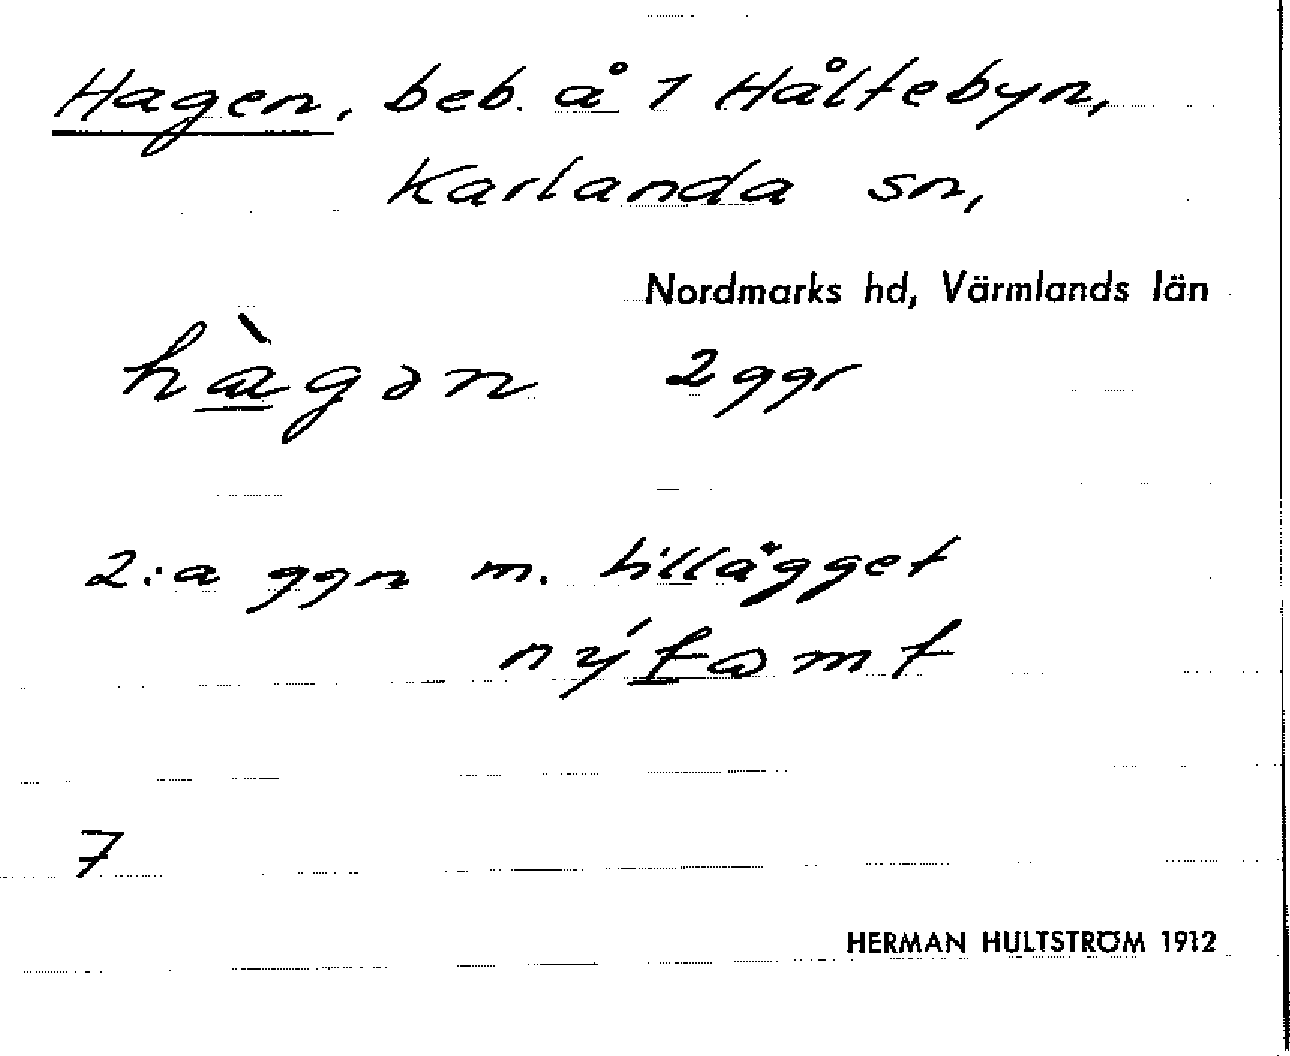 Hagen, beb. å 1 Håltebyn,
Karlanda sn,
Nordmarks hd, Värmlands län
hàgən 2 ggr
2:a ggn m. tillägget
nýtamt
7
HERMAN HULTSTRÖM 1912